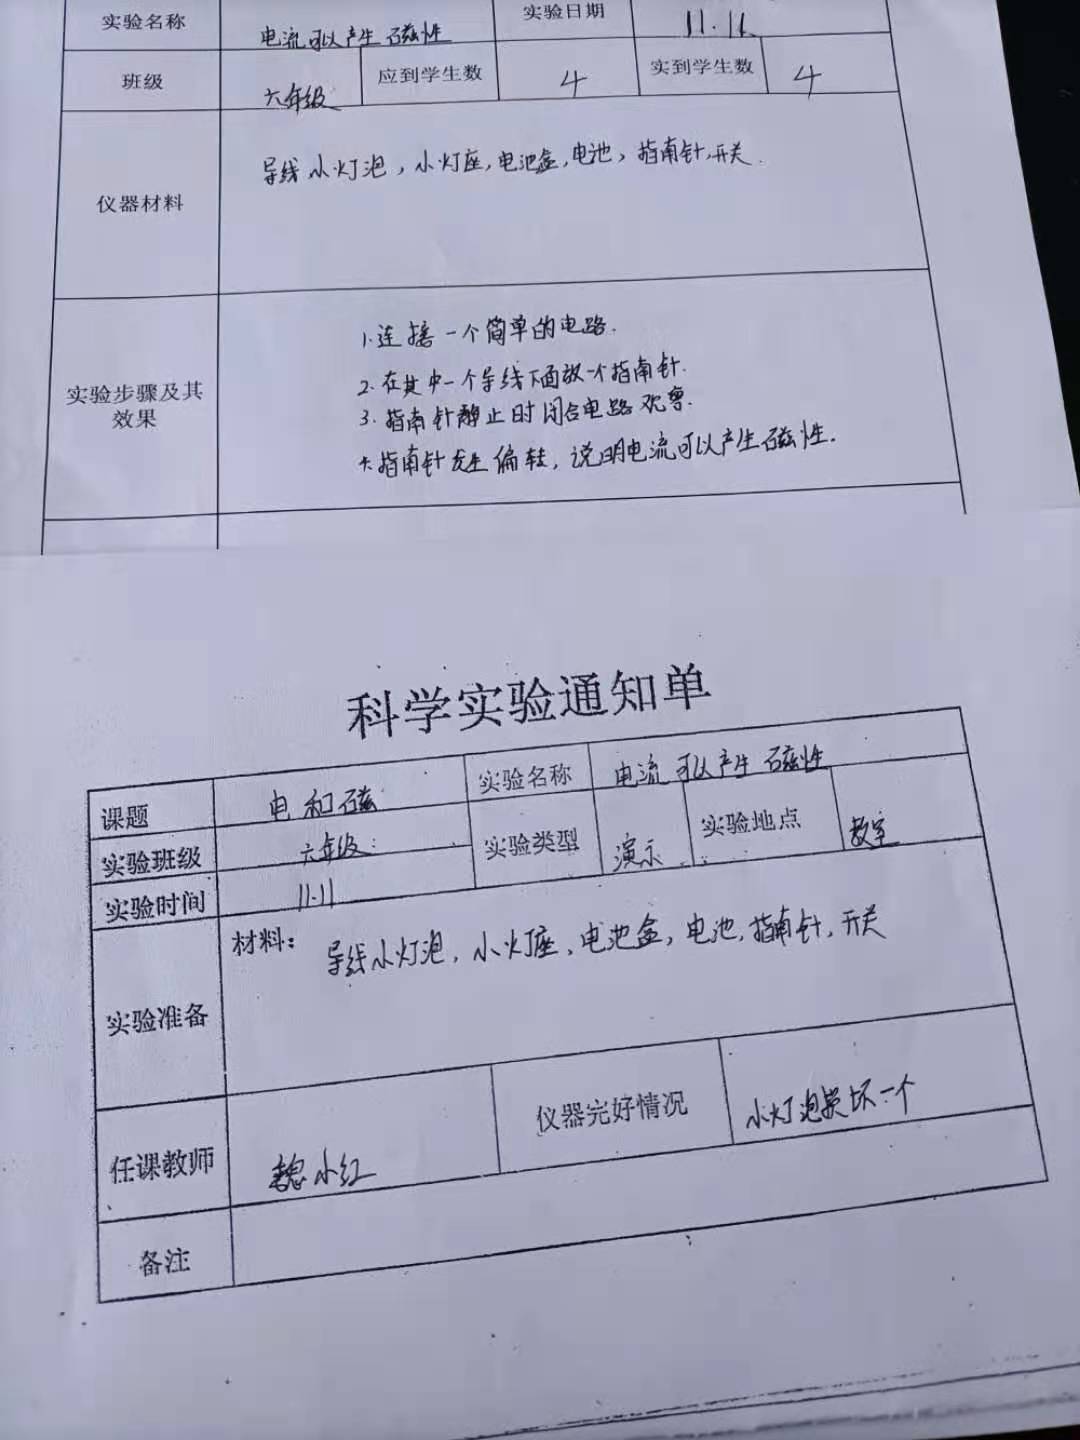 实验名称 电流可以产生磁性 实验日期 11.11
班级 六年级 应到学生数 4 实到学生数 4
仪器材料 导线小灯泡，小灯座，电池盒，电池，指南针，开关.
实验步骤及其效果
1.连接一个简单的电路.
2.在其中一个导线下面放一个指南针.
3.指南针静止时闭合电路观察.
4.指南针发生偏转，说明电流可以产生磁性.
科学实验通知单
课题 电和磁 实验名称 电流可以产生磁性
实验班级 六年级 实验类型 演示 实验地点 教室
实验时间 11.11
实验准备 材料： 导线小灯泡，小灯座，电池盒，电池，指南针，开关
任课教师 魏小红 仪器完好情况 小灯泡损坏一个
备注